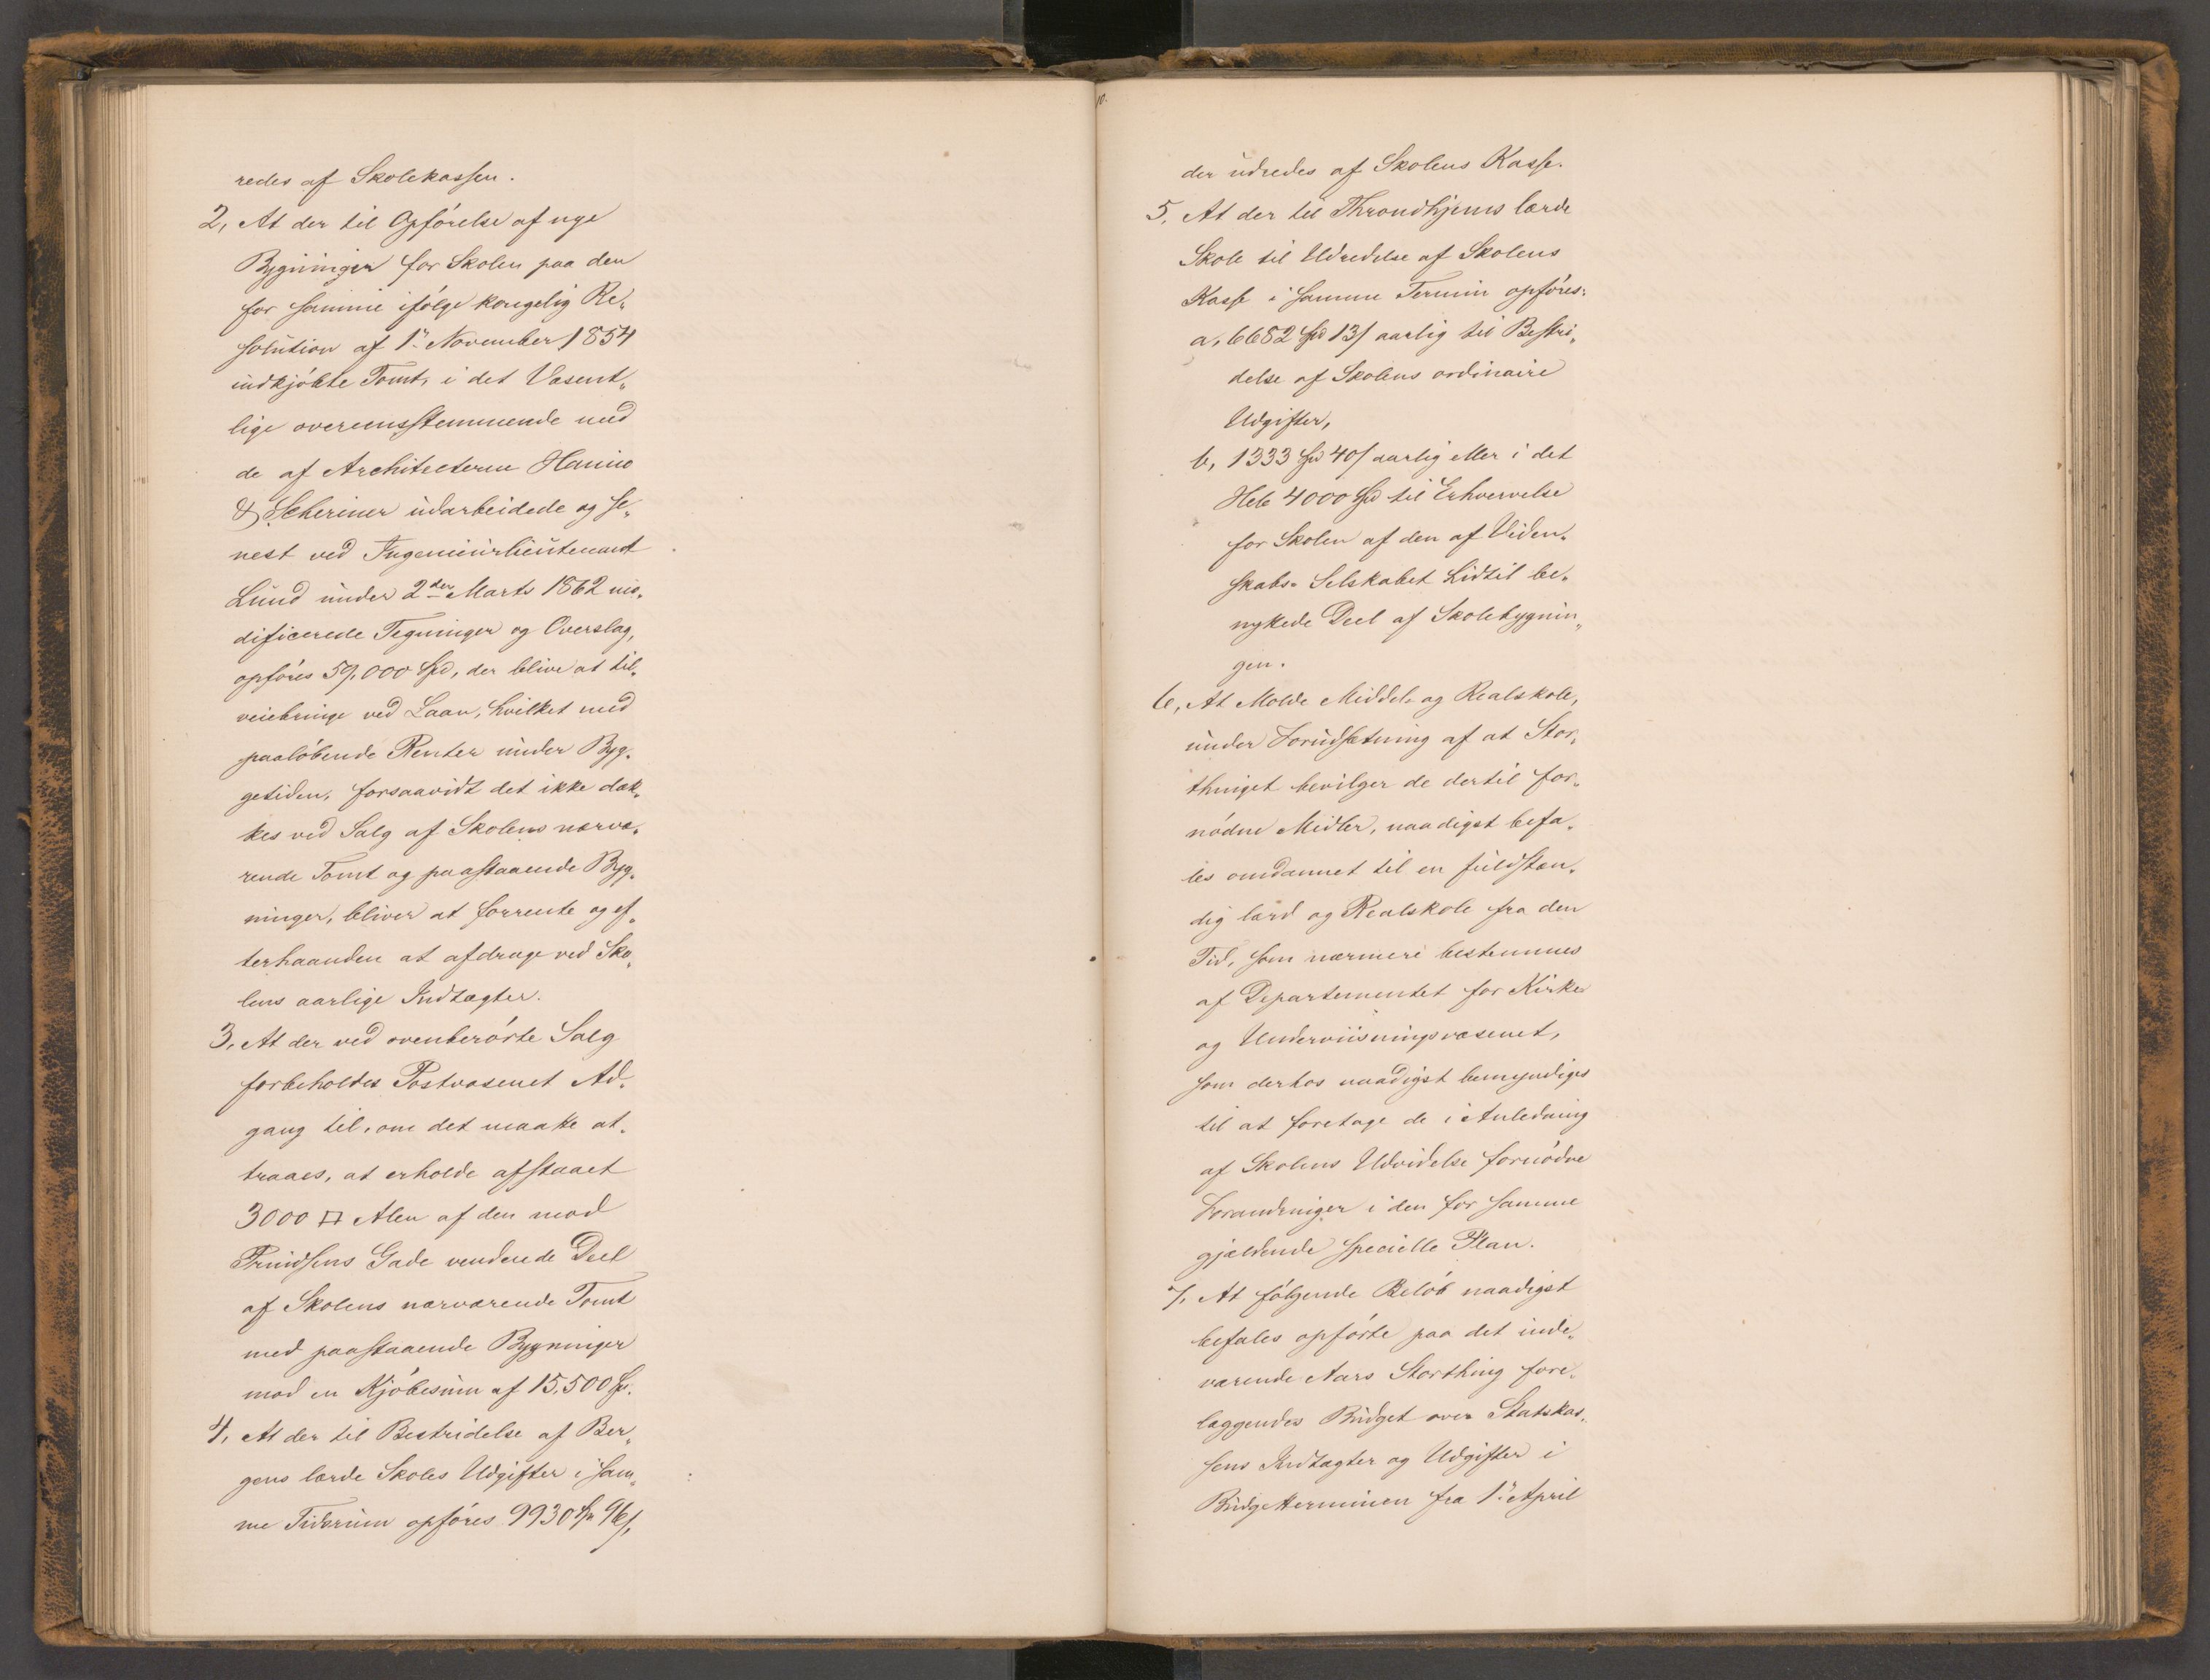 redes af Skolekassen.
2, At der til Opförelse af nye
Bygninger for Skolen paa den
for samme ifölge kongelig Re„
solution af 1ᵉ November 1854
indkjöbte Tomt, i det Væsent„
lige overeensstemmende med
de af Architecterne Hanno
& Schirmer udarbeidede og se„
nest ved Ingenieurlieutenant
Lund under 2den Marts 1862 mo„
dificerede Tegninger og Overslag,
opföres 59,000 Spd, der blive at til„
veiebringe ved Laan, hvilket med
paalöbende Renter under Byg„
getiden, forsaavidt det ikke dæk„
kes ved Salg af Skolens nærvæ„
rende Tomt og paastaaende Byg„
ninger, bliver at forrente og ef„
terhaanden at afdrage ved Sko„
lens aarlige Indtægter.
3, At der ved ovenberörte Salg
forbeholdes Postvæsenet Ad„
gang til, om det maatte at„
traaes, at erholde afstaaet
3000 □ Alen af den mod
Prindsens Gade vendende Deel
af Skolens nærværende Tomt
med paastaaende Bygninger
mod en Kjöbesum af 15,500 Sp.
4, At der til Bestridelse af Ber„
gens lærde Skoles Udgifter i sam„
me Tidsrum opföres 9930 Sp 96 s,
10.
der udredes af Skolens Kasse.
5, At der til Throndhjems lærde
Skole til Udredelse af Skolens
Kasse i samme Termin opföres:
a, 6682 Spd 13 s aarlig til Bestri„
delse af Skolens ordinaire
Udgifter,
b, 1333 Spd 40 s aarlig eller i det
Hele 4000 Spd til Erhvervelse
for Skolen af den af Viden„
skabs-Selskabet hidtil be„
nyttede Deel af Skolebygnin„
gen.
6, At Molde Middel- og Realskole,
under Forudsætning af at Stor„
thinget bevilger de dertil for„
nödne Midler, naadigst befa„
les omdannet til en fuldstæn„
dig lærd og Realskole fra den
Tid, som nærmere bestemmes
af Departementet for Kirke-
og Underviisningsvæsenet,
som derhos naadigst bemyndiges
til at foretage de i Anledning
af Skolens Udvidelse fornödne
Forandringer i den for samme
gjældende specielle Plan.
7, At fölgende Belöb naadigst
befales opförte paa det inde„
værende Aars Storthing fore„
læggendes Budget over Statskas„
sens Indtægter og Udgifter i
Budgetterminen fra 1ᵉ April